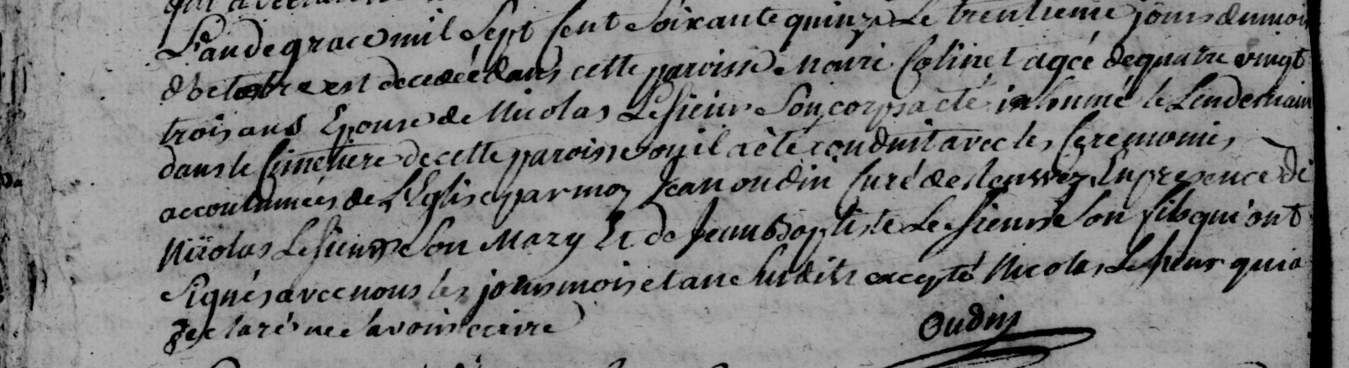 L'an de grace mil Sept Cent Soixante quinze Le trentieme jour du moi
d'octobre est decedée dans cette paroisse Marie Colinet agée de quatre vingt
trois ans Epouse de Nicolas Lesieur Son corps a eté inhumé le Lendemain
dans le Cimetiere de cette paroisse ou il a eté conduit avec les Ceremonies
accoutumées de L'Eglise par moy Jean oudin Curé de En presence de
Nicolas Lesieur Son Mary Et de Jean Baptiste Lesieur Son fils qui ont
signés avec nous les jours mois et an susdits excepté Nicolas Lesieur qui a
declaré ne Savoir ecrire
Oudin